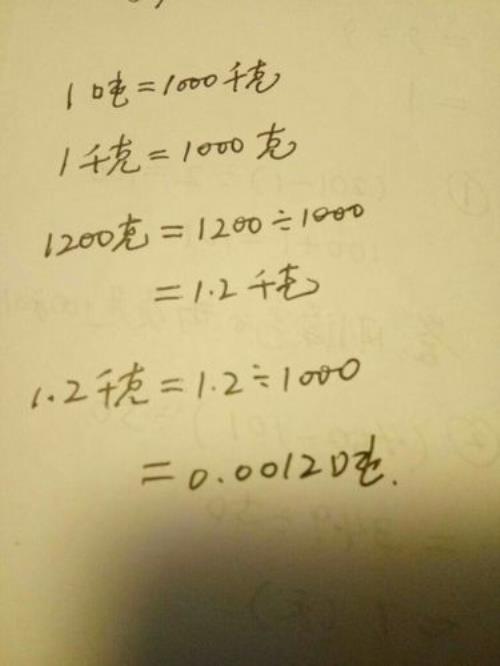 1吨=1000千克
1千克=1000克
1200克=1200÷1000
=1.2千克
1.2千克=1.2÷1000
=0.0012吨.